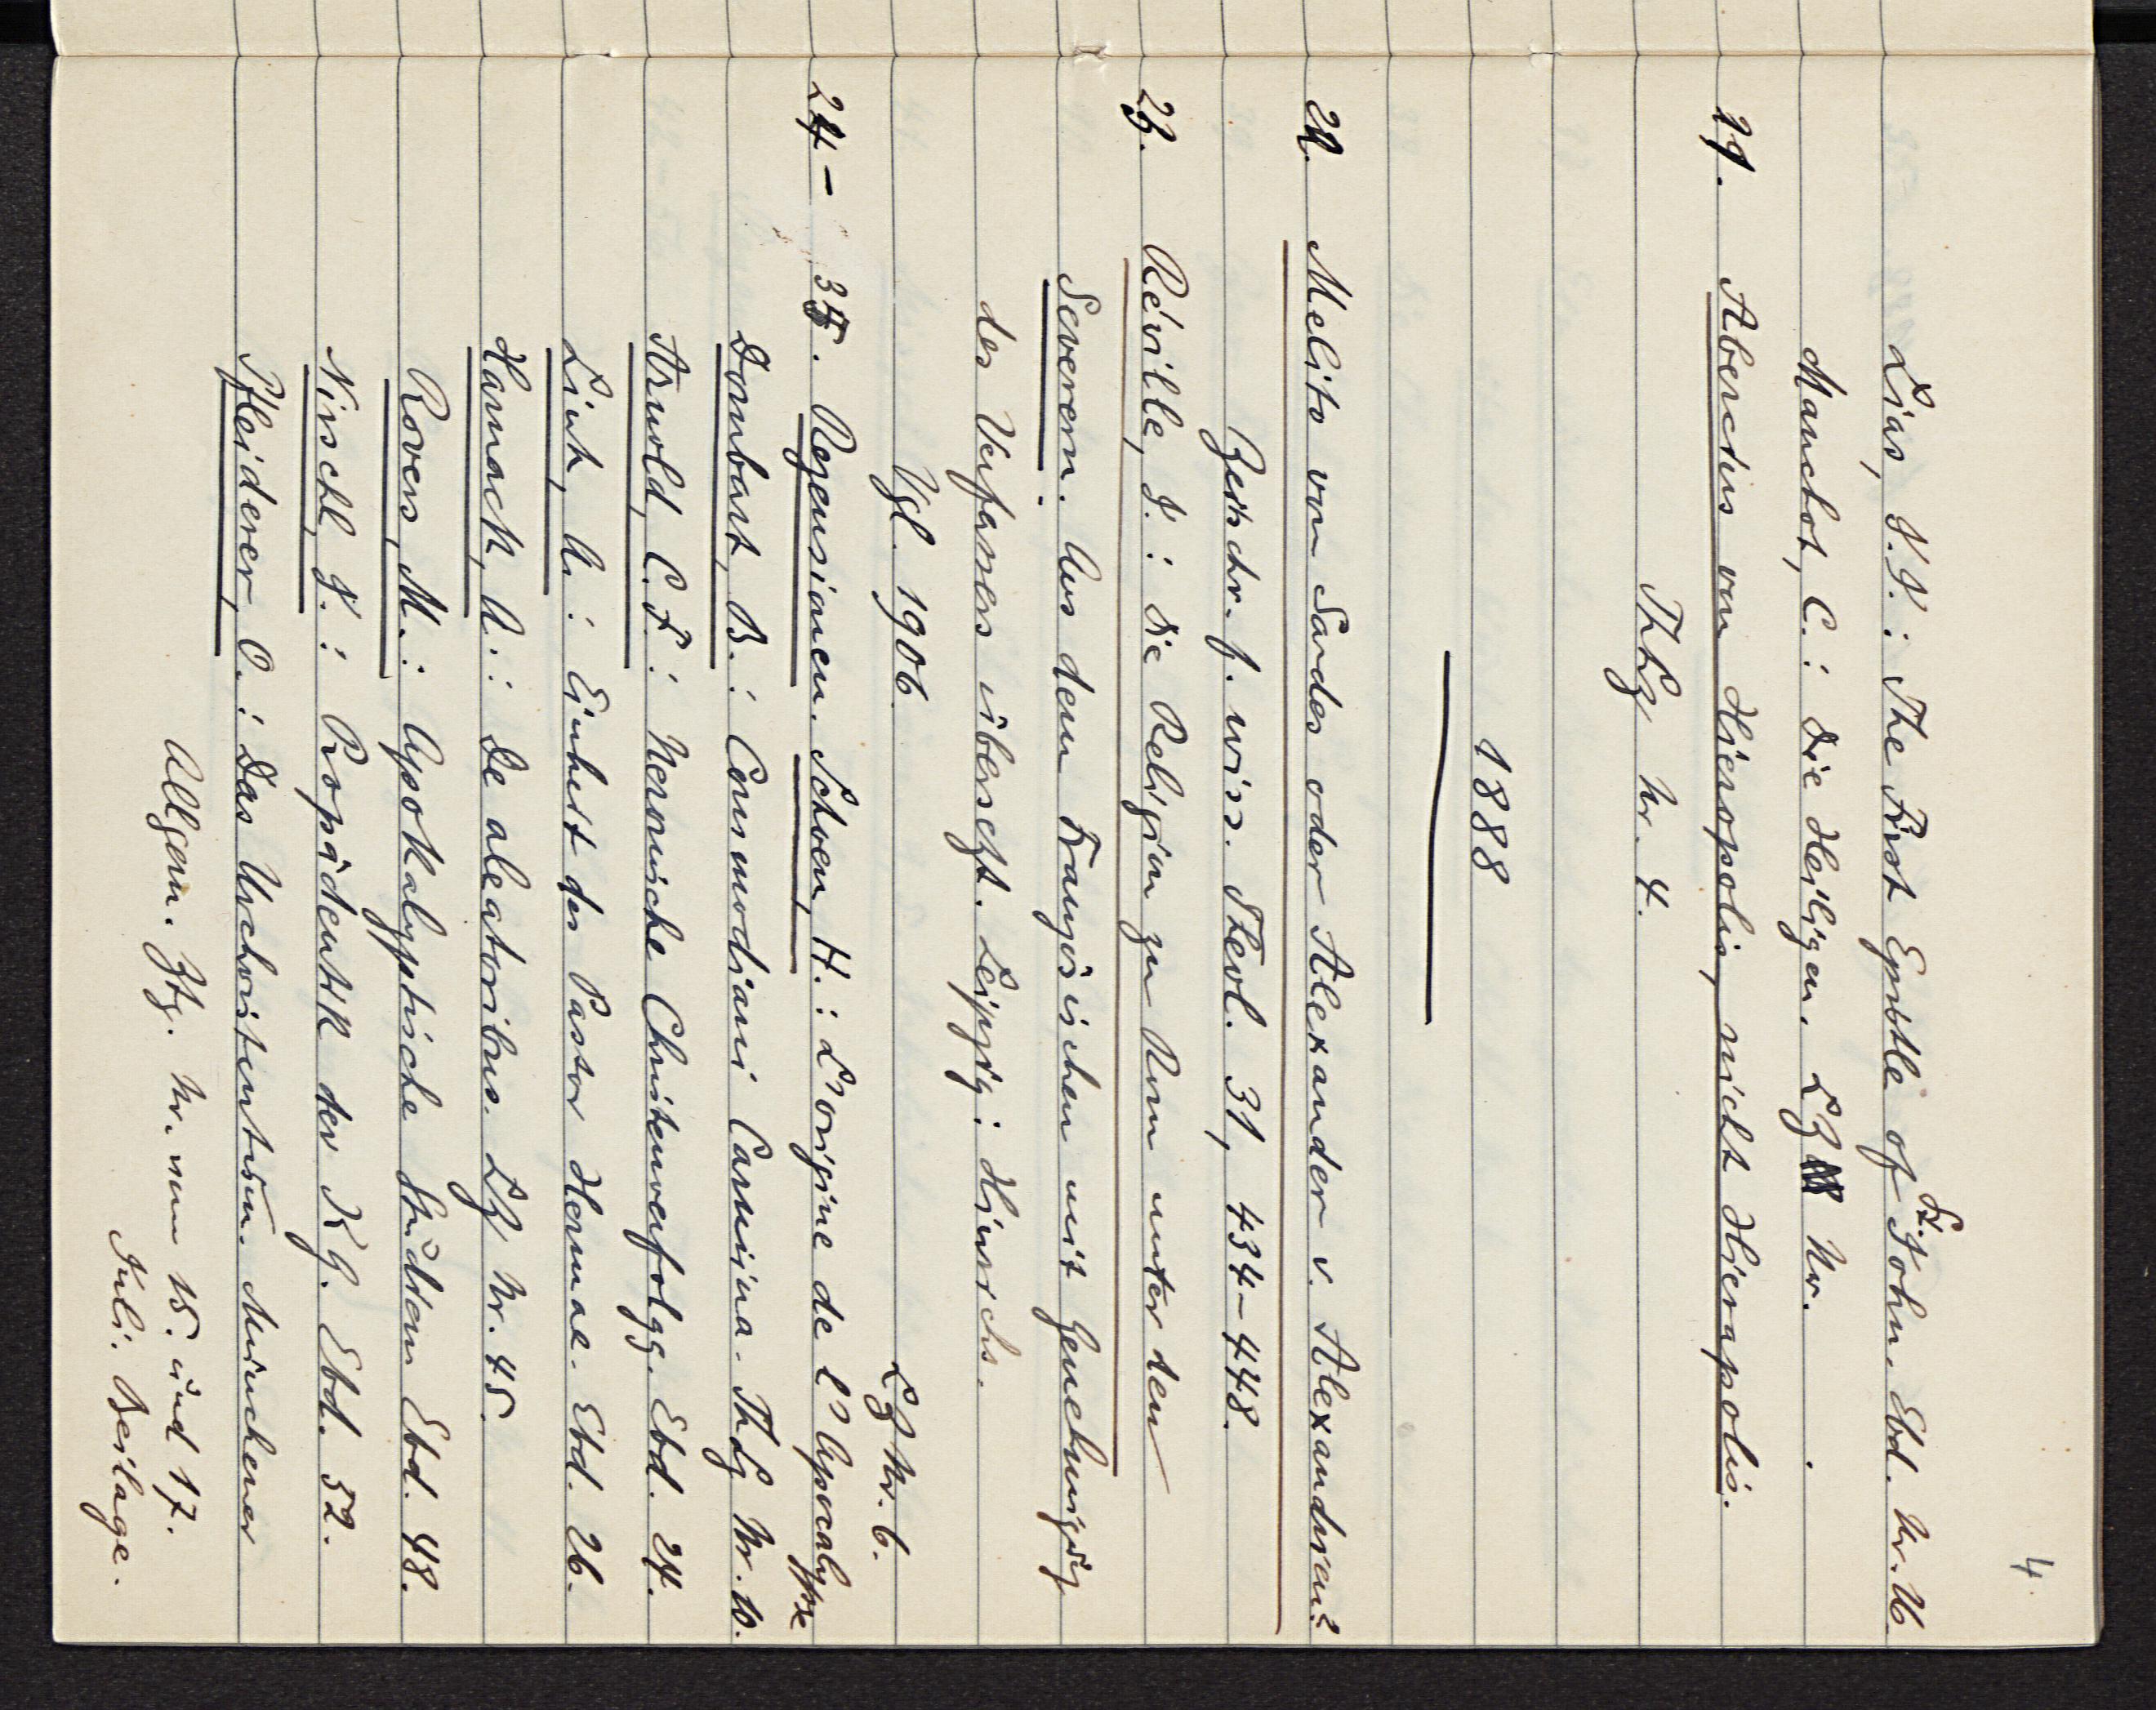 4
Lias, J. J.: The First Epistle of St. John. Ebd. Nr. 26.
Manchot, C.: Die Heiligen. LZ Nr. .
21. Abercius von Hieropolis, nicht Hierapolis.
ThLz Nr. 4.
1888
22. Melito von Sardes oder Alexander v. Alexandrien?
Zeitschr. f. wiss. Theol. 31, 434-448.
23. Réville, J.: Die Religion zu Rom unter den
Severern. Aus dem Französischen mit Genehmigung
des Verfassers übersetzt. Leipzig: Hinrichs.
Vgl. 1906.
LZ Nr. 6.
24 - 35. Rezensionen. Schoen, H.: L'origine de l'Apocalypse
Dombart, B.: Commodiani Carmina. ThLz Nr. 10.
Arnold, C. F.: Neronische Christenverfolgg. Ebd. 24.
Link, A.: Einheit des Pastor Hermae. Ebd. 26.
Harnack, A.: De aleatoribus. LZ Nr. 45.
Rovers, M.: Apokalyptische Studien Ebd. 48.
Nirschl, J.: Propädeutik der KG. Ebd. 52.
Pfleiderer, O.: Das Urchristentum. Münchener
Allgem. Ztg. Nr. vom 15. und 17.
Juli. Beilage.